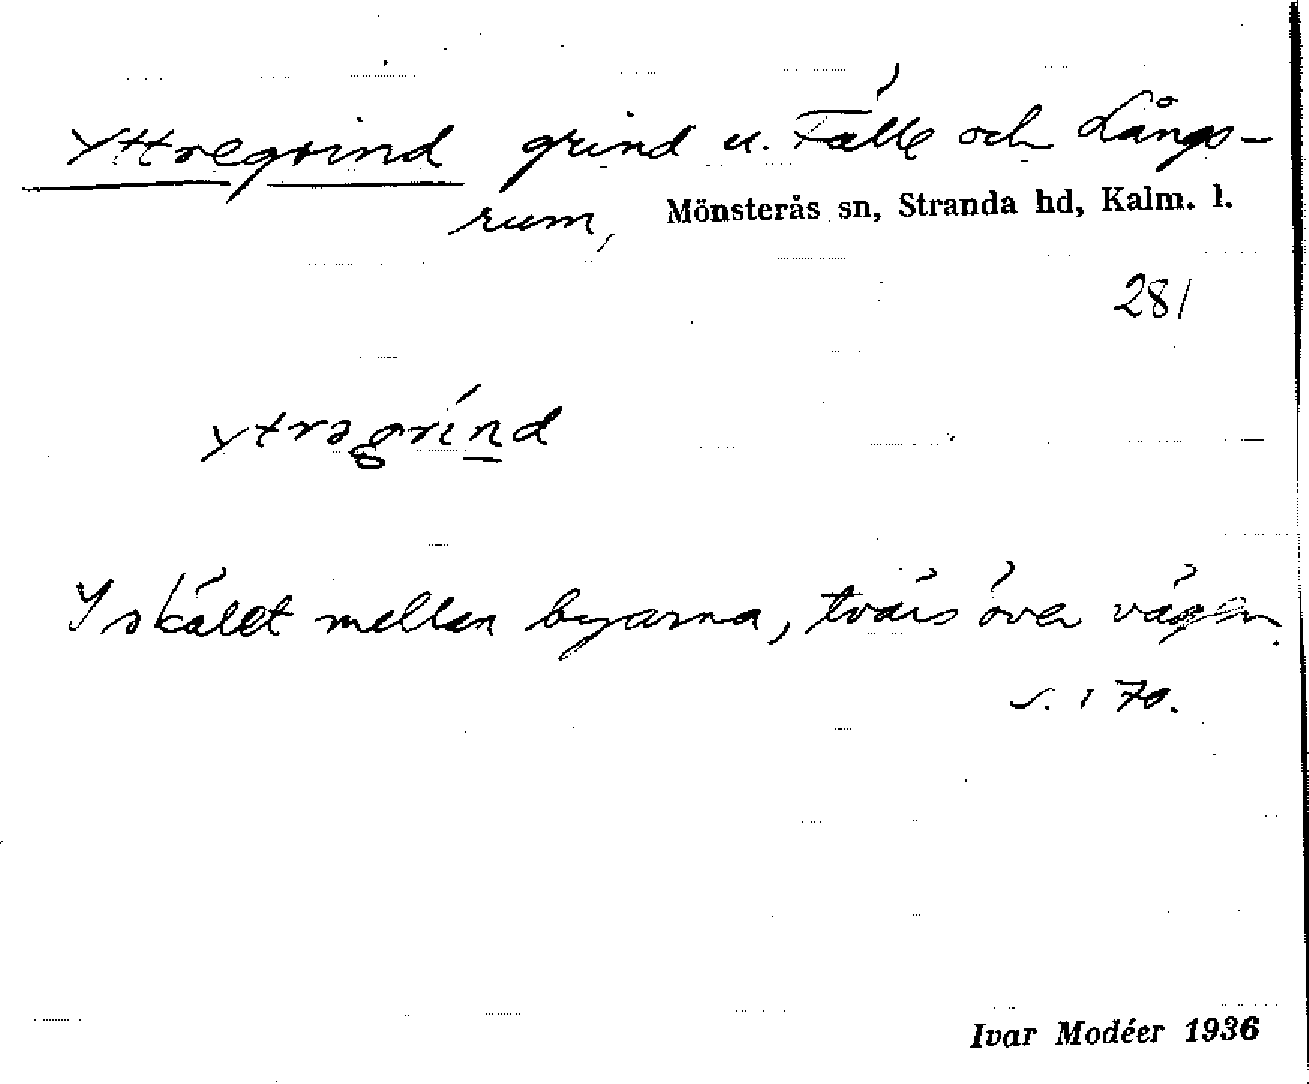 Yttregrind grind u. Fälle och Långs-
rum, Mönsterås sn, Stranda hd, Kalm. l.
281
ytrəgrínd
I skälet mellan byarna, tvärs över vägen.
s. 170.
Ivar Modéer 1936